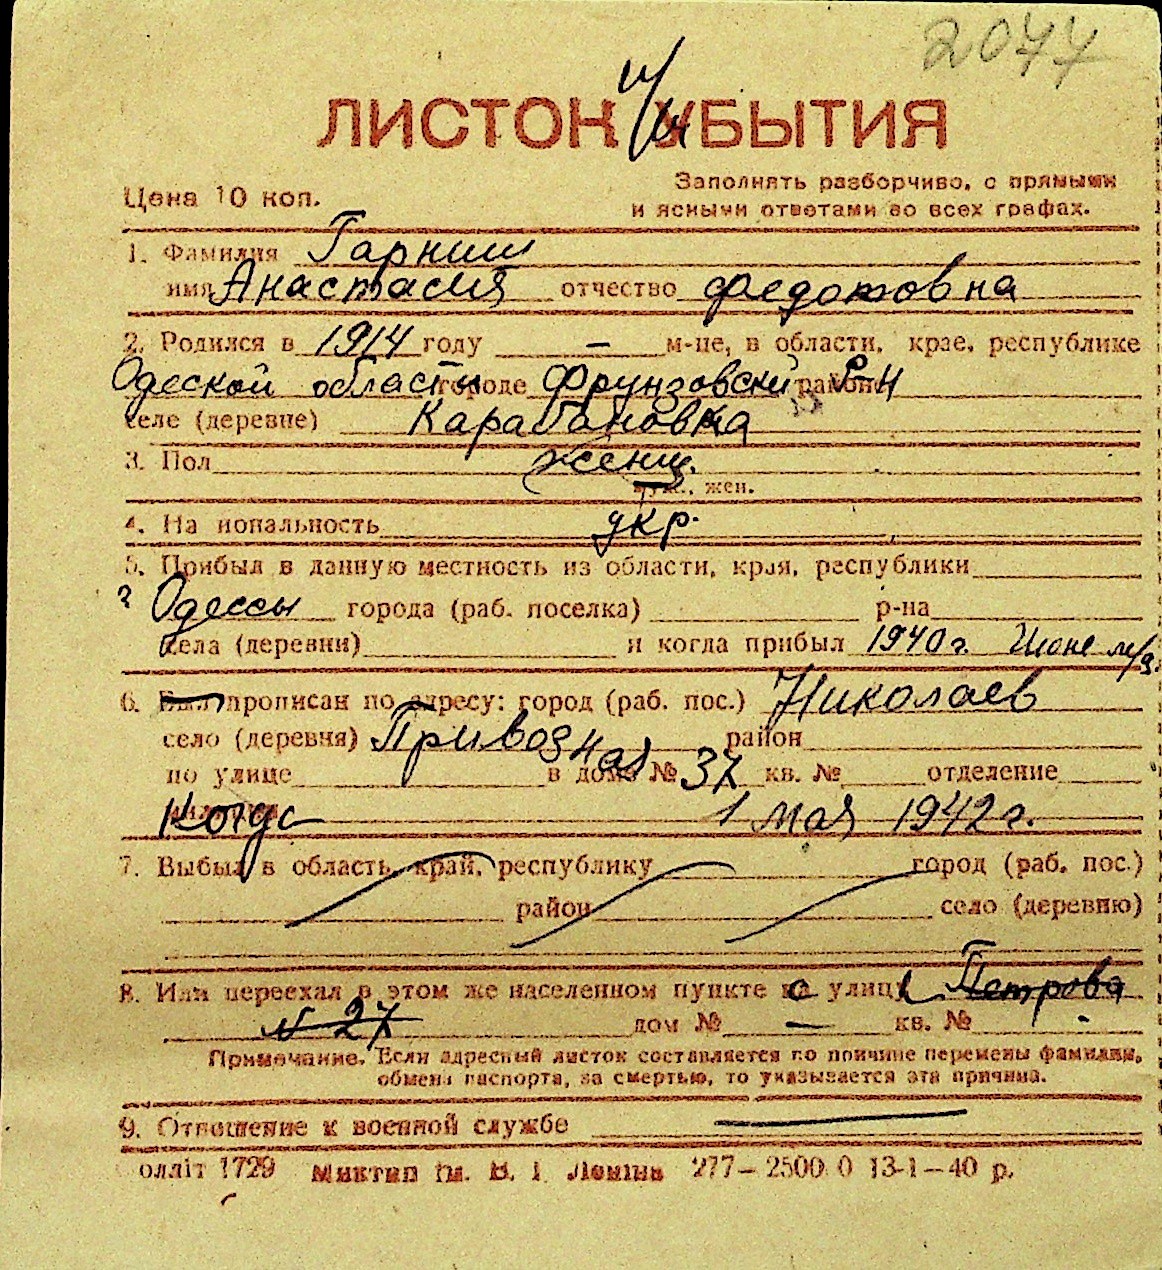 2077
ЛИСТОК УБЫТИЯ
Цена 10 коп.
Заполнять разборчиво, с прямыми
и ясными ответами во всех графах.
1. Фамилия Гарниш
имя Анастасия отчество Федотовна
2. Родился в 1914 году — м-це, в области, крае, республике
Одеской области городе Фрунзовский районе р-н
селе (деревне) Карабановка
3. Пол женщ.
муж., жен.
4. На иональность укр.
5. Прибыл в данную местность из области, края, республики
г Одессы города (раб. поселка) р-на
села (деревни) и когда прибыл 1940 г. Июне м/ц.
6. Был прописан по адресу: город (раб. пос.) Николаев
село (деревня) Привозная район
по улице в доме № 37 кв. № отделение
1 мая 1942 г.
7. Выбыл в область, край, республику город (раб. пос.)
район село (деревню)
8. Или переехал в этом же населенном пункте на улицу Петрова
N 27 дом № — кв. № -
Примечание. Если адресный листок составляется по причине перемены фамилии,
обмена паспорта, за смертью, то указывается эта причина.
9. Отношение к военной службе —
олліт 1729 Миктип ім. В. І. Леніна 277—2500 0 13-1—40 р.